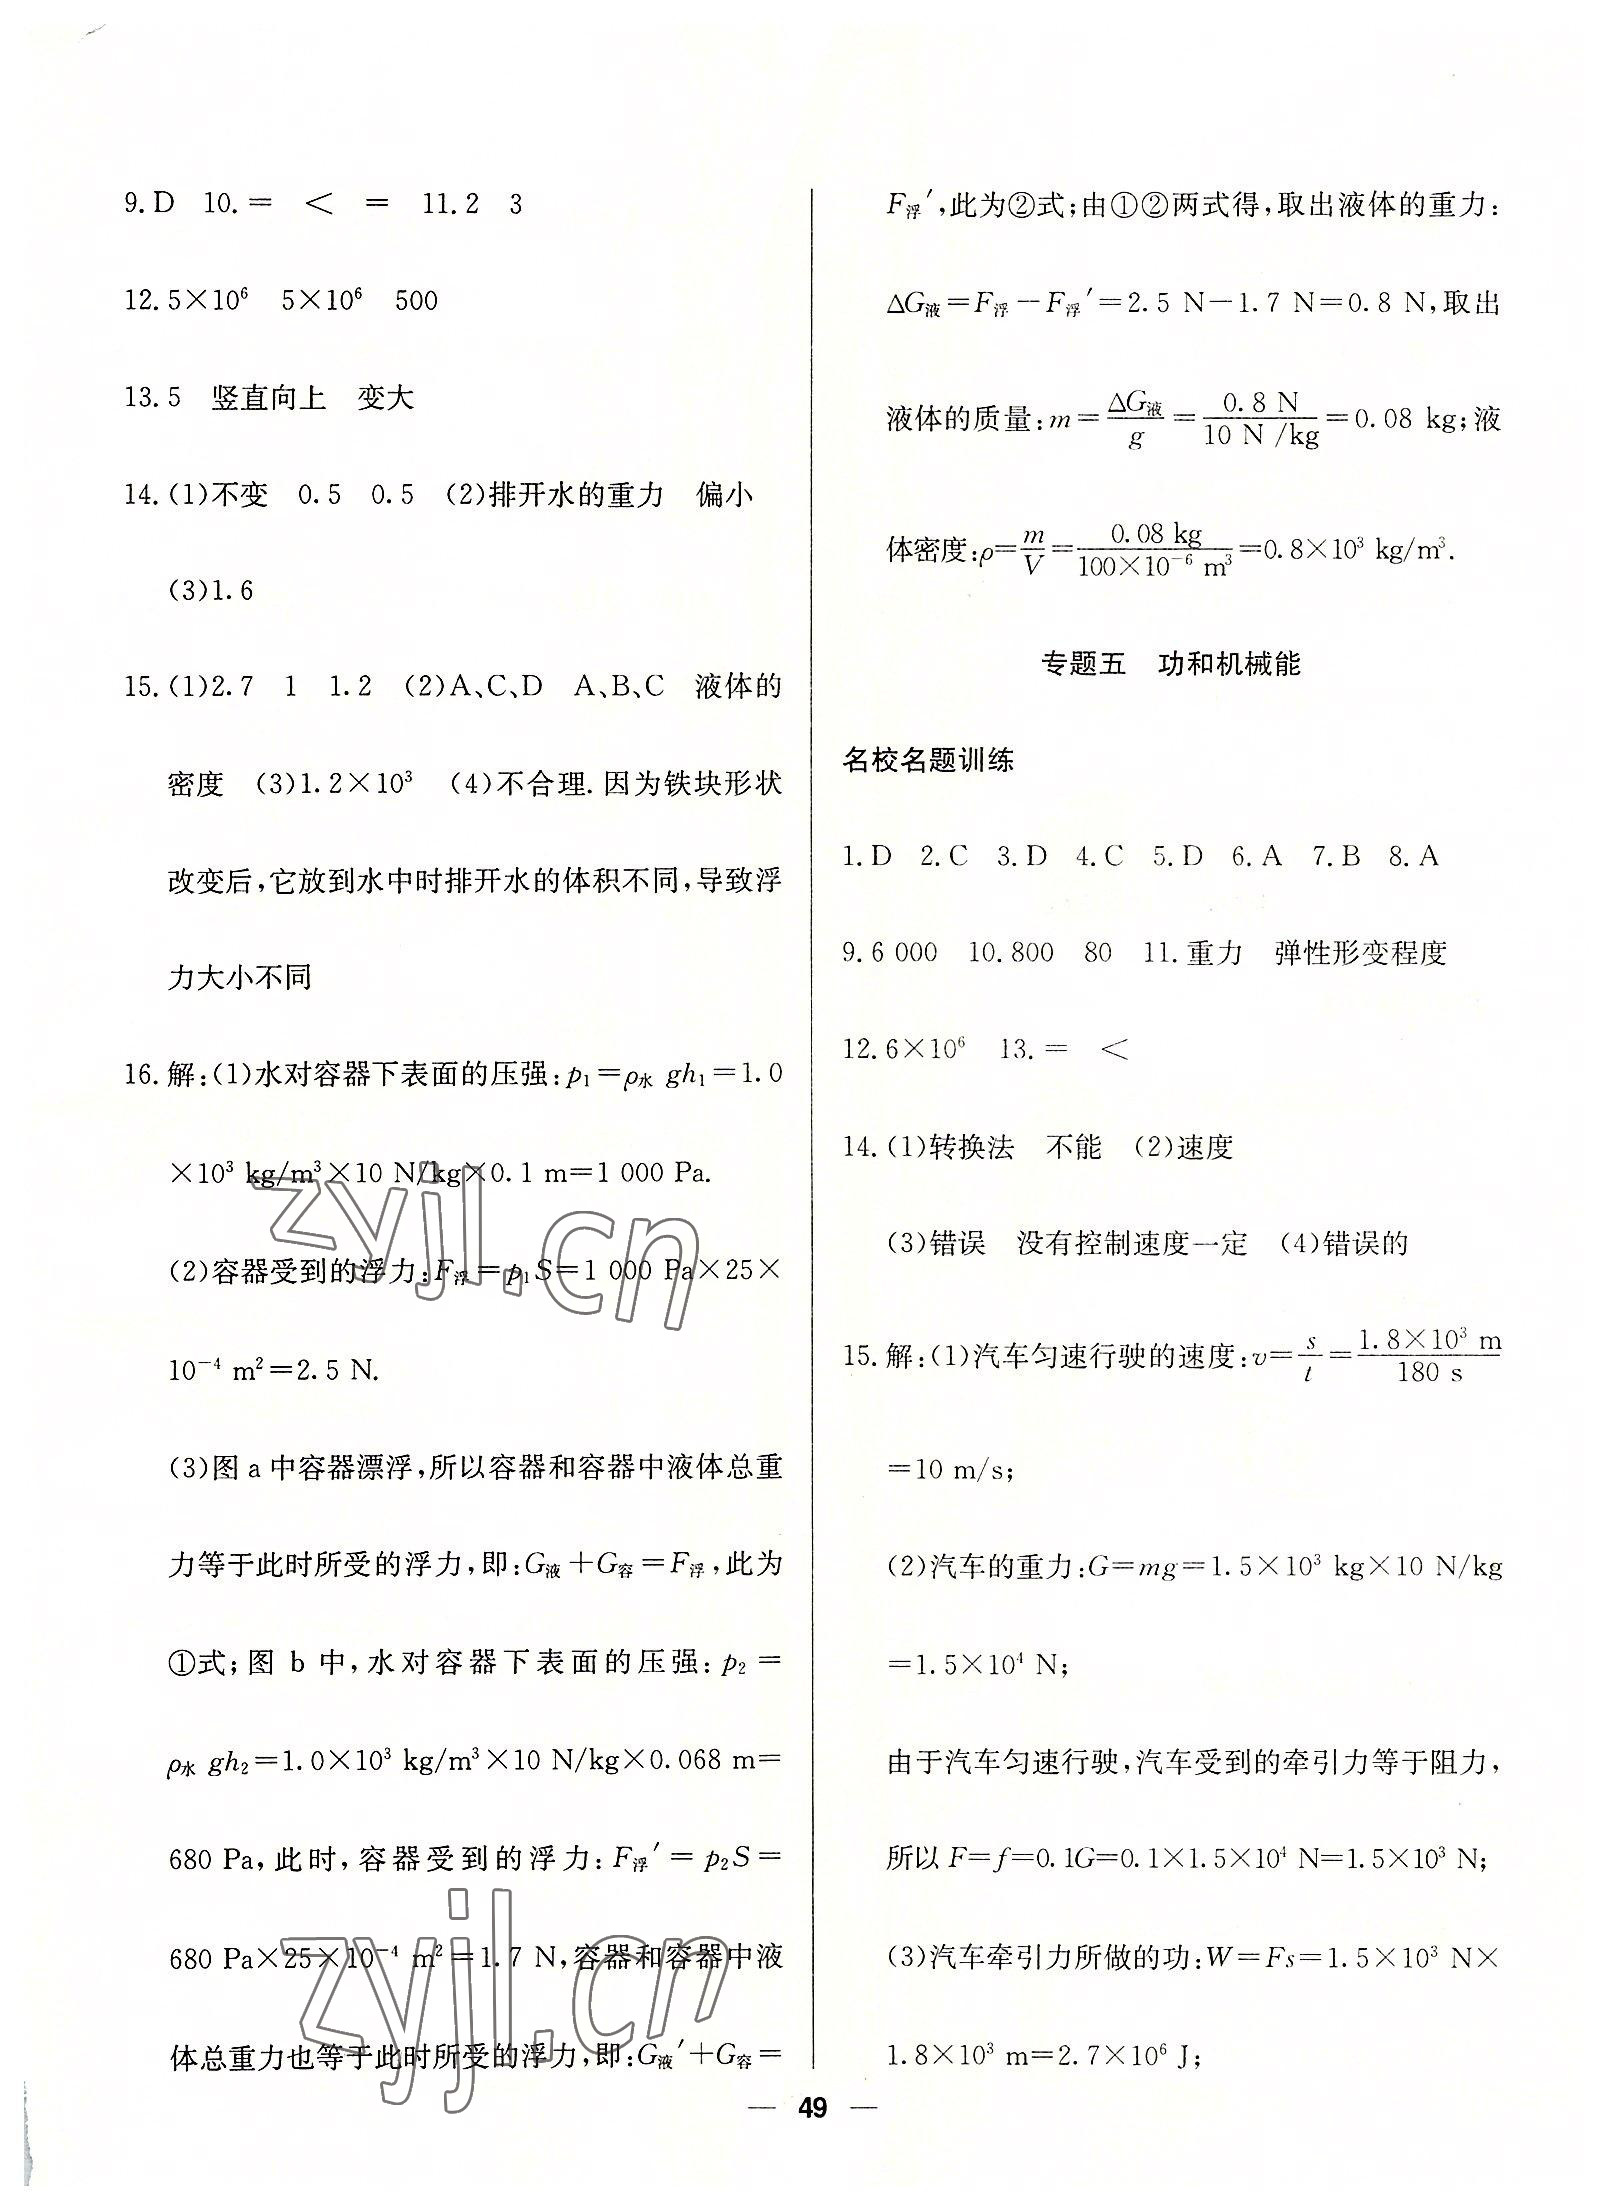 9.D 10.= < = 11.2 3
12.5×10⁶ 5×10⁶ 500
13.5 竖直向上 变大
14.(1)不变 0.5 0.5 (2)排开水的重力 偏小
(3)1.6
15.(1)2.7 1 1.2 (2)A、C、D A、B、C 液体的
密度 (3)1.2×10³ (4)不合理.因为铁块形状
改变后,它放到水中时排开水的体积不同,导致浮
力大小不同
16.解:(1)水对容器下表面的压强:p₁=ρ水gh₁=1.0
×10³ kg/m³×10 N/kg×0.1 m=1 000 Pa.
(2)容器受到的浮力:F浮=p₁S=1 000 Pa×25×
10⁻⁴ m²=2.5 N.
(3)图a中容器漂浮,所以容器和容器中液体总重
力等于此时所受的浮力,即:G液+G容=F浮,此为
①式;图 b 中,水对容器下表面的压强:p₂=
ρ水gh₂=1.0×10³ kg/m³×10 N/kg×0.068 m=
680 Pa,此时,容器受到的浮力:F浮′=p₂S=
680 Pa×25×10⁻⁴ m²=1.7 N,容器和容器中液
体总重力也等于此时所受的浮力,即:G液′+G容=
F浮′,此为②式;由①②两式得,取出液体的重力:
ΔG液=F浮-F浮′=2.5 N-1.7 N=0.8 N,取出
液体的质量:m=ΔG液/g=0.8 N/10 N/kg=0.08 kg;液
体密度:ρ=m/V=0.08 kg/100×10⁻⁶ m³=0.8×10³ kg/m³.
专题五 功和机械能
名校名题训练
1.D 2.C 3.D 4.C 5.D 6.A 7.B 8.A
9.6 000 10.800 80 11.重力 弹性形变程度
12.6×10⁶ 13.= <
14.(1)转换法 不能 (2)速度
(3)错误 没有控制速度一定 (4)错误的
15.解:(1)汽车匀速行驶的速度:v=s/t=1.8×10³ m/180 s
=10 m/s;
(2)汽车的重力:G=mg=1.5×10³ kg×10 N/kg
=1.5×10⁴ N;
由于汽车匀速行驶,汽车受到的牵引力等于阻力,
所以F=f=0.1G=0.1×1.5×10⁴ N=1.5×10³ N;
(3)汽车牵引力所做的功:W=Fs=1.5×10³ N×
1.8×10³ m=2.7×10⁶ J;
— 49 —
zyjl.cn
zyjl.cn